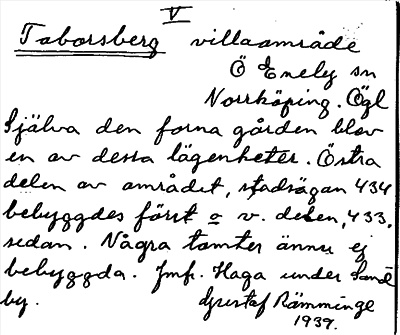 V
Taborsberg villaområde
Ö Eneby sn
Norrköping. Ögl
Själva den forna gården blev
en av dessa lägenheter. Östra
delen av området, stadsägan 434
bebyggdes först o v. delen, 433,
sedan. Några tomter ännu ej
bebyggda. Jmf. Haga under Sand
by. Gustaf Rämminge
1937.